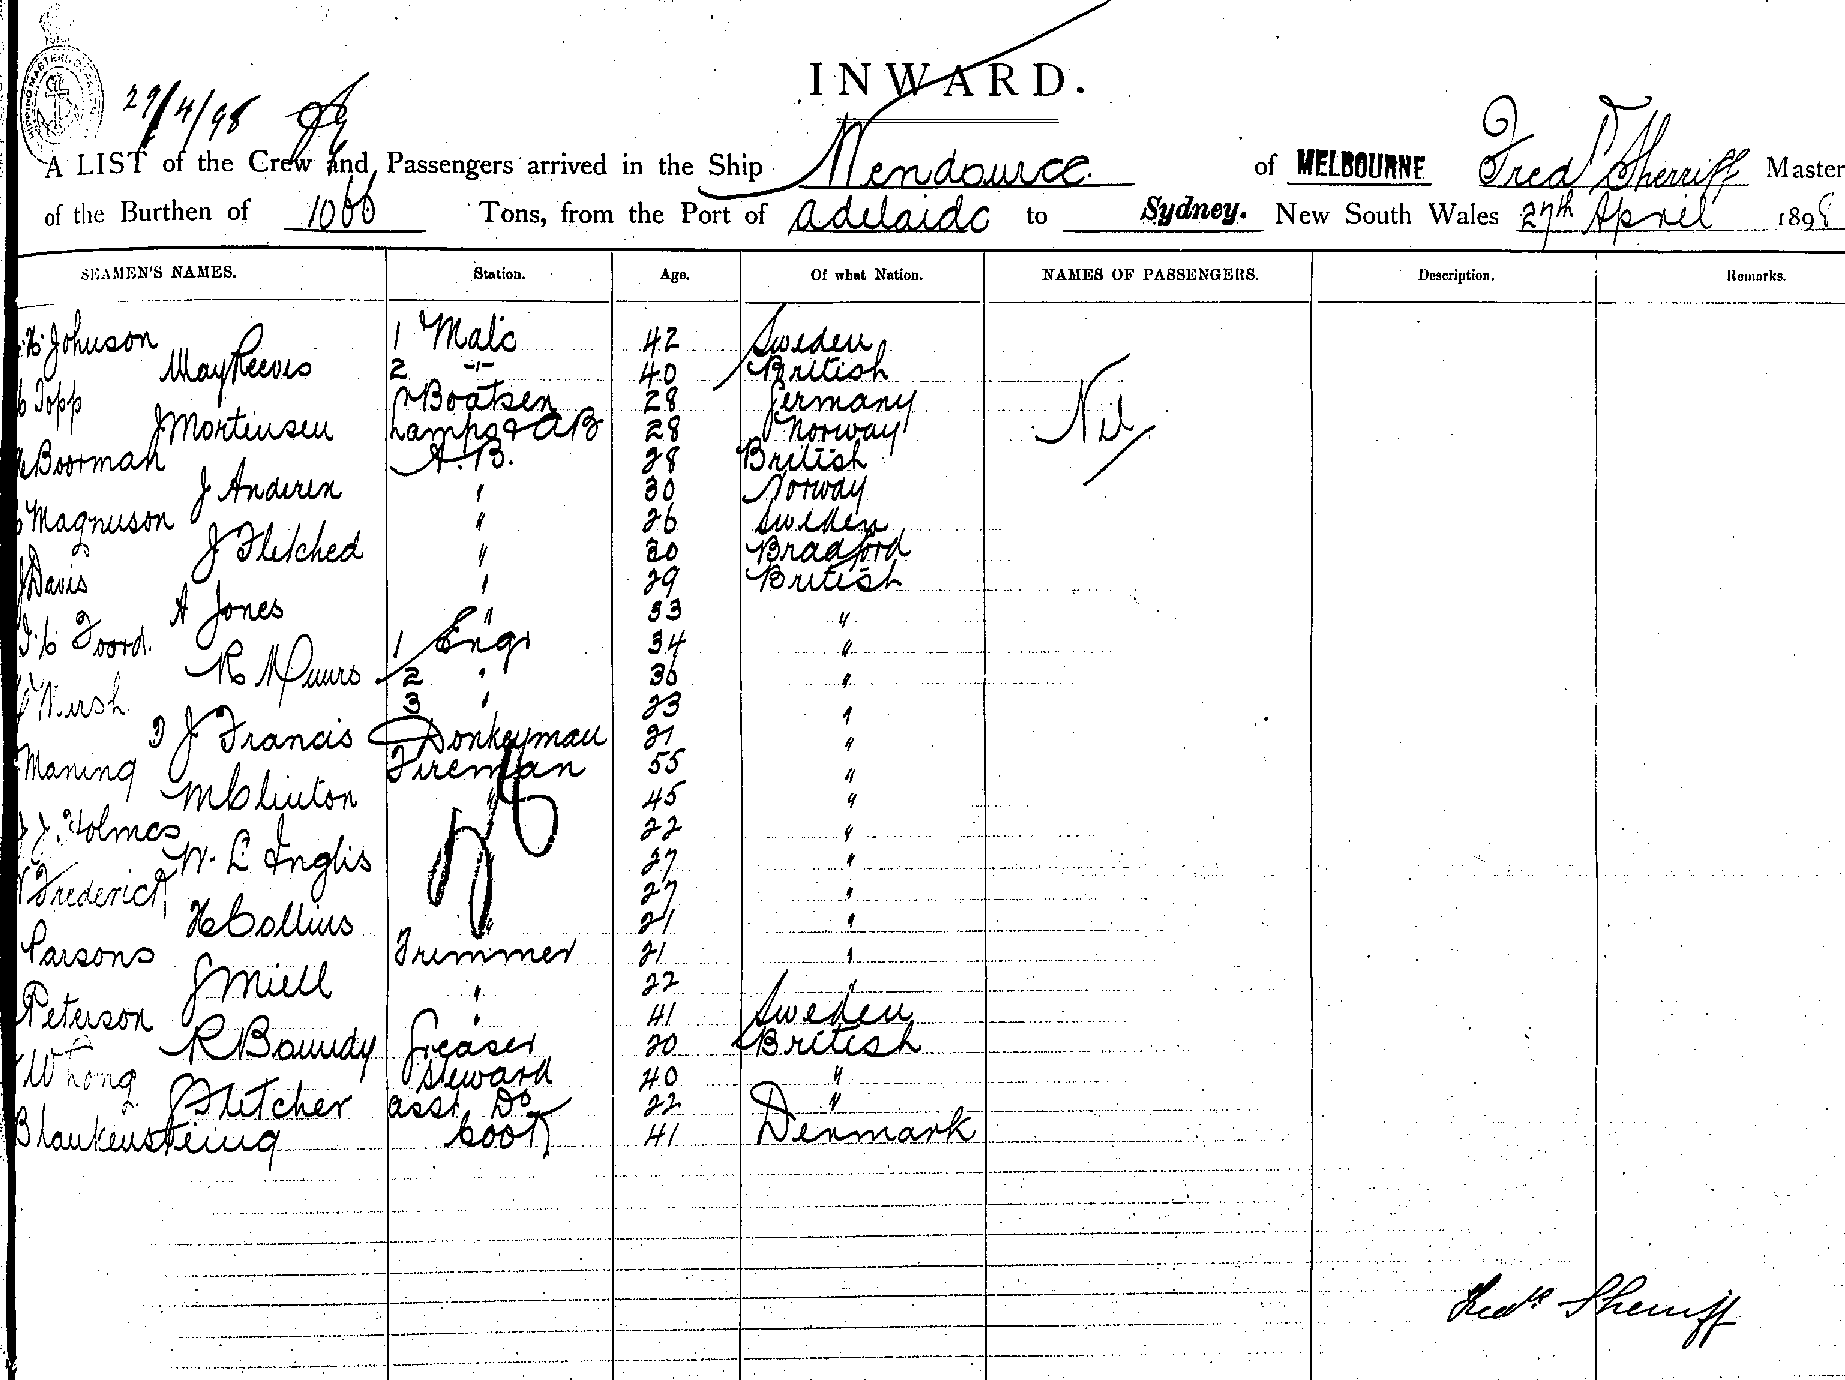 29/4/98
INWARD.
A LIST of the Crew and Passengers arrived in the Ship Wendouree of MELBOURNE Fred Sherriff Master
of the Burthen of 1066 Tons, from the Port of Adelaide to Sydney. New South Wales 27th April 1898
SEAMEN'S NAMES. Station. Age. Of what Nation. NAMES OF PASSENGERS. Description. Remarks.
Johnson 1 Mate 42 Sweden
May Reeves 2 -"- 40 British
Topp Boatsen 28 Germany
J Mortensen Lamps & AB 28 Norway Nil
Boorman A.B. 28 British
J Anderen " 30 Norway
Magnuson " 26 Sweden
J Fletched " 20 Bradford
J Davis " 29 British
A Jones " 33 "
Foord. 1 Engr 34 "
R Munro 2 " 36 "
3 " 23 "
J Francis Donkeyman 21 "
Maning Fireman 55 "
M Clinton " 45 "
J. Holmes 22 "
W. L Inglis 27 "
Frederick 27 "
H Collins " 21 "
Parsons Trimmer 21 "
J Miell " 22 "
Peterson " 41 Sweden
R Boundy Greaser 20 British
W Long Steward 40 "
J Fletcher asst Do 22 "
Blankensteing Cook 41 Denmark
Fredk Sherriff